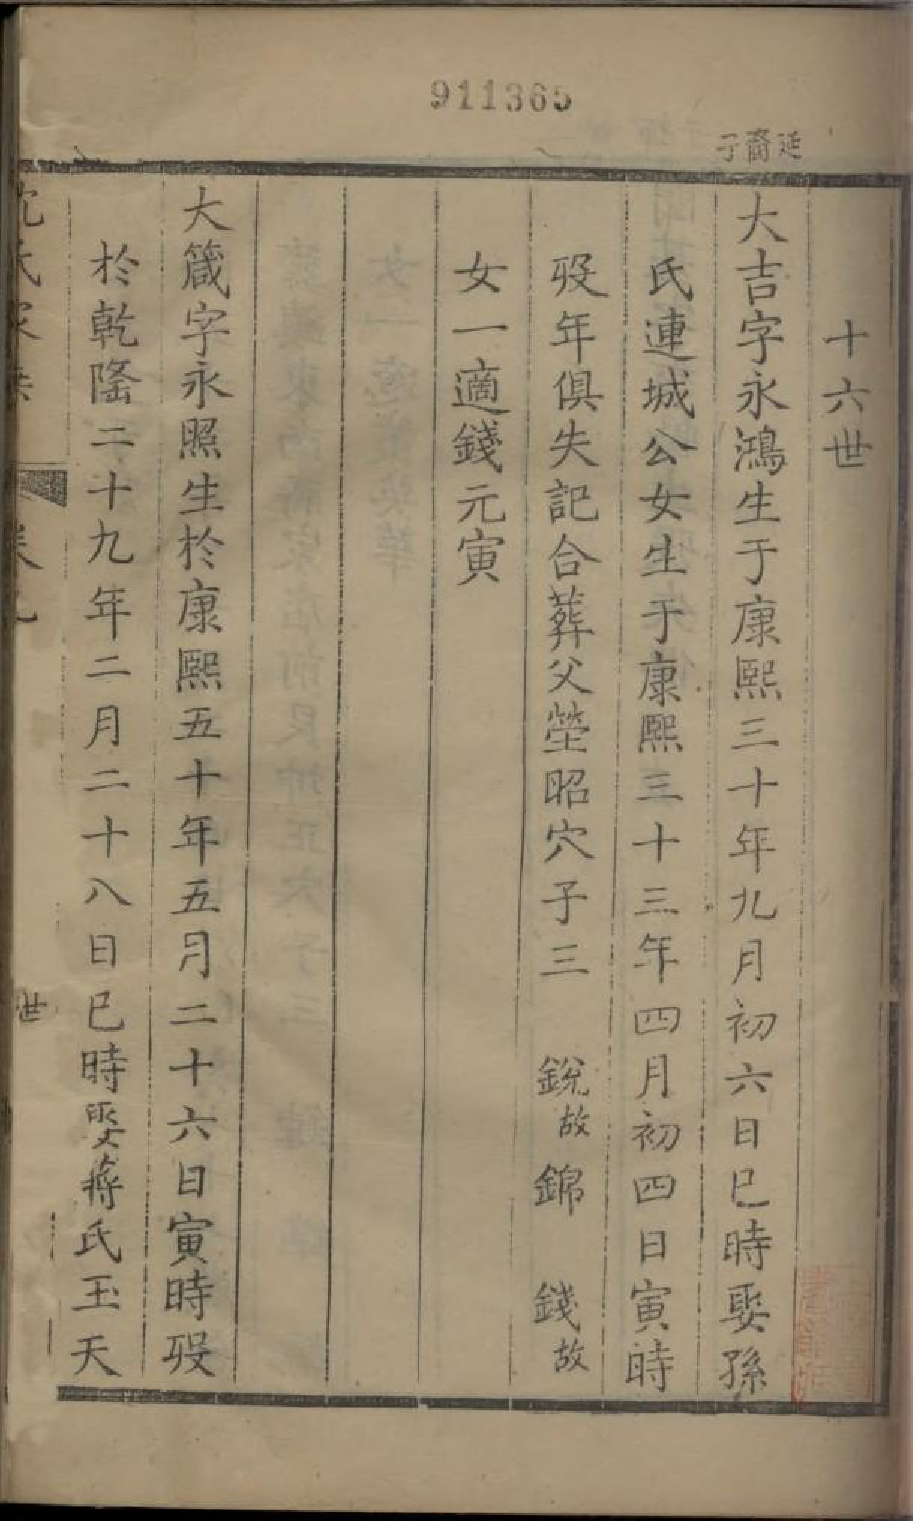 911365
延裔子
十六世
大吉字永鴻生于康熙三十年九月初六日巳時娶孫
氏連城公女生于康熙三十三年四月初四日寅時
歿年俱失記合葬父塋昭穴子三 銳故 錦 錢故
女一適錢元寅
大箴字永照生於康熙五十年五月二十六日寅時歿
於乾隆二十九年二月二十八日巳時娶蔣氏玉天
世